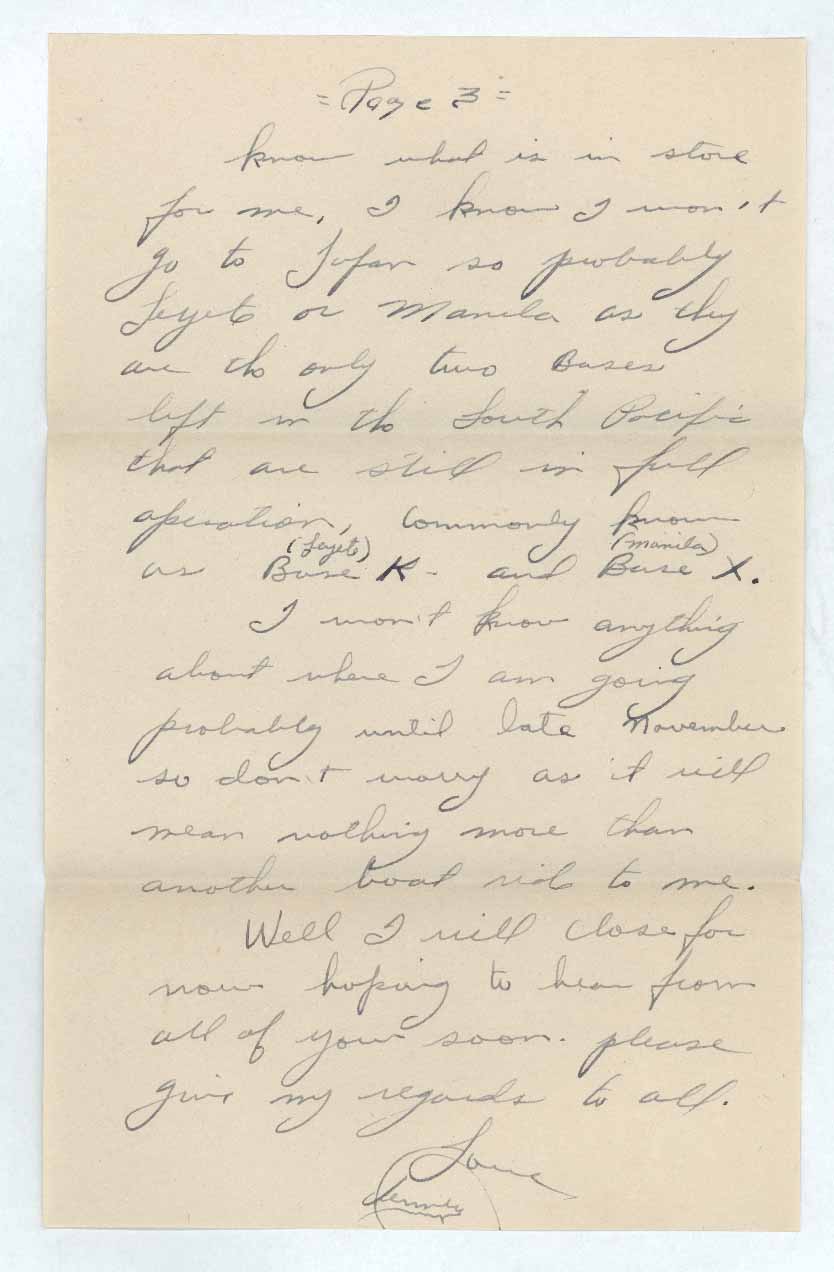 = Page 3 =
know what is in store
for me, I know I won't
go to Japan so probably
Leyete or Manila as they
are the only two Bases
left in the South Pacific
that are still in full
operation, commonly known
(Leyete) (Manila)
as Base K - and Base X.
I won't know anything
about where I am going
probably until late November
so don't worry as it will
mean nothing more than
another boat ride to me.
Well I will close for
now hoping to hear from
all of you soon. please
give my regards to all.
Love